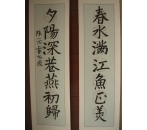 春水滿江魚正美
夕陽深巷燕初歸